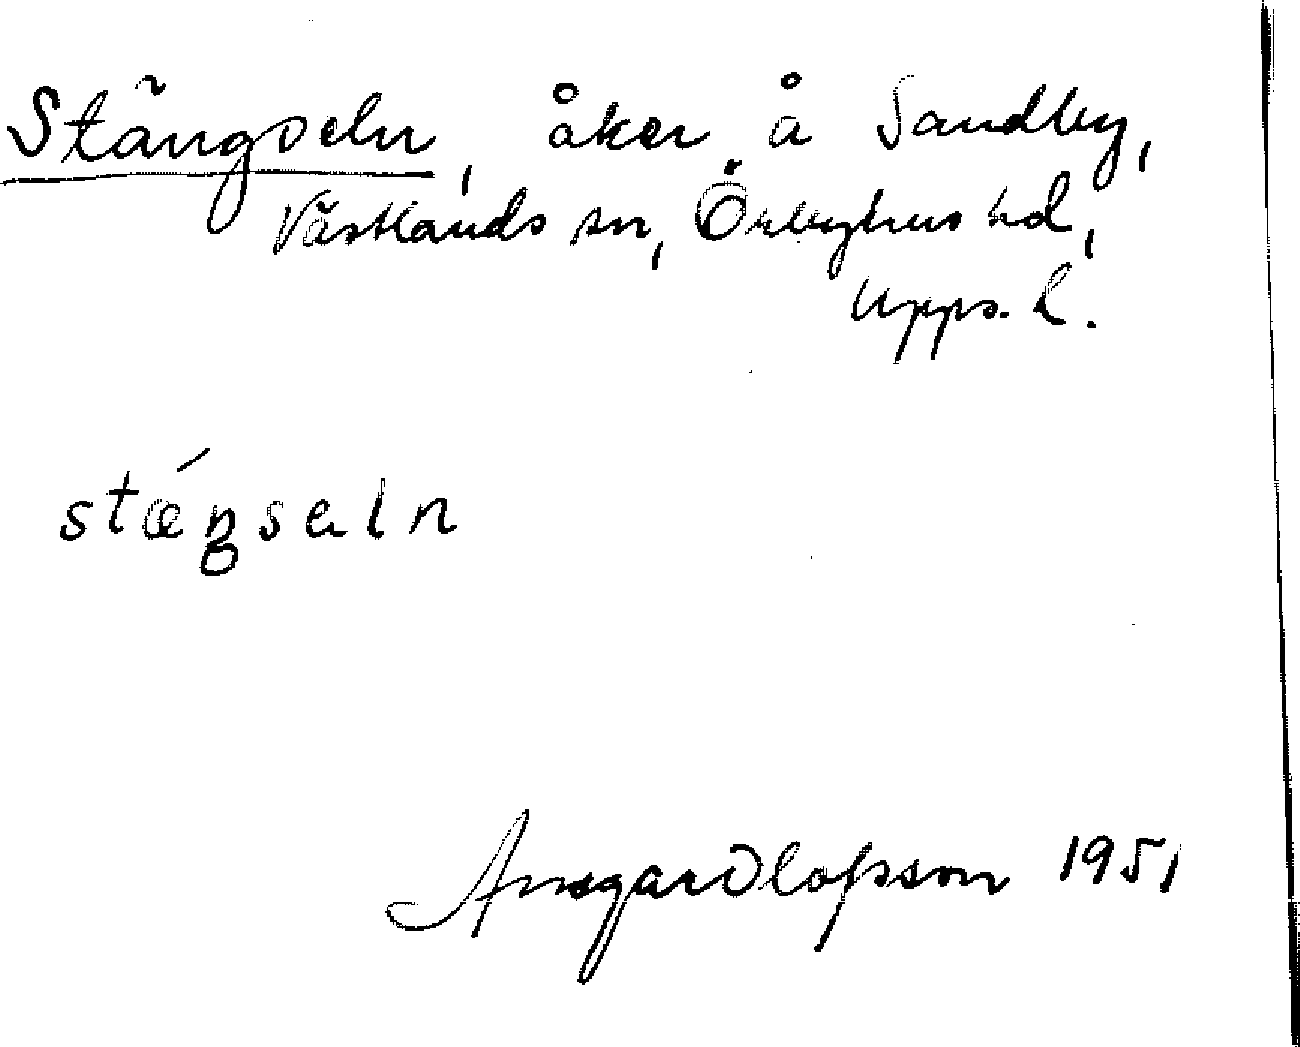 Stängseln, åker å Sandby,
Västlands sn, Örbyhus hd,
Upps. l.
stæ´ŋsəln
Ansgar Olofsson 1951